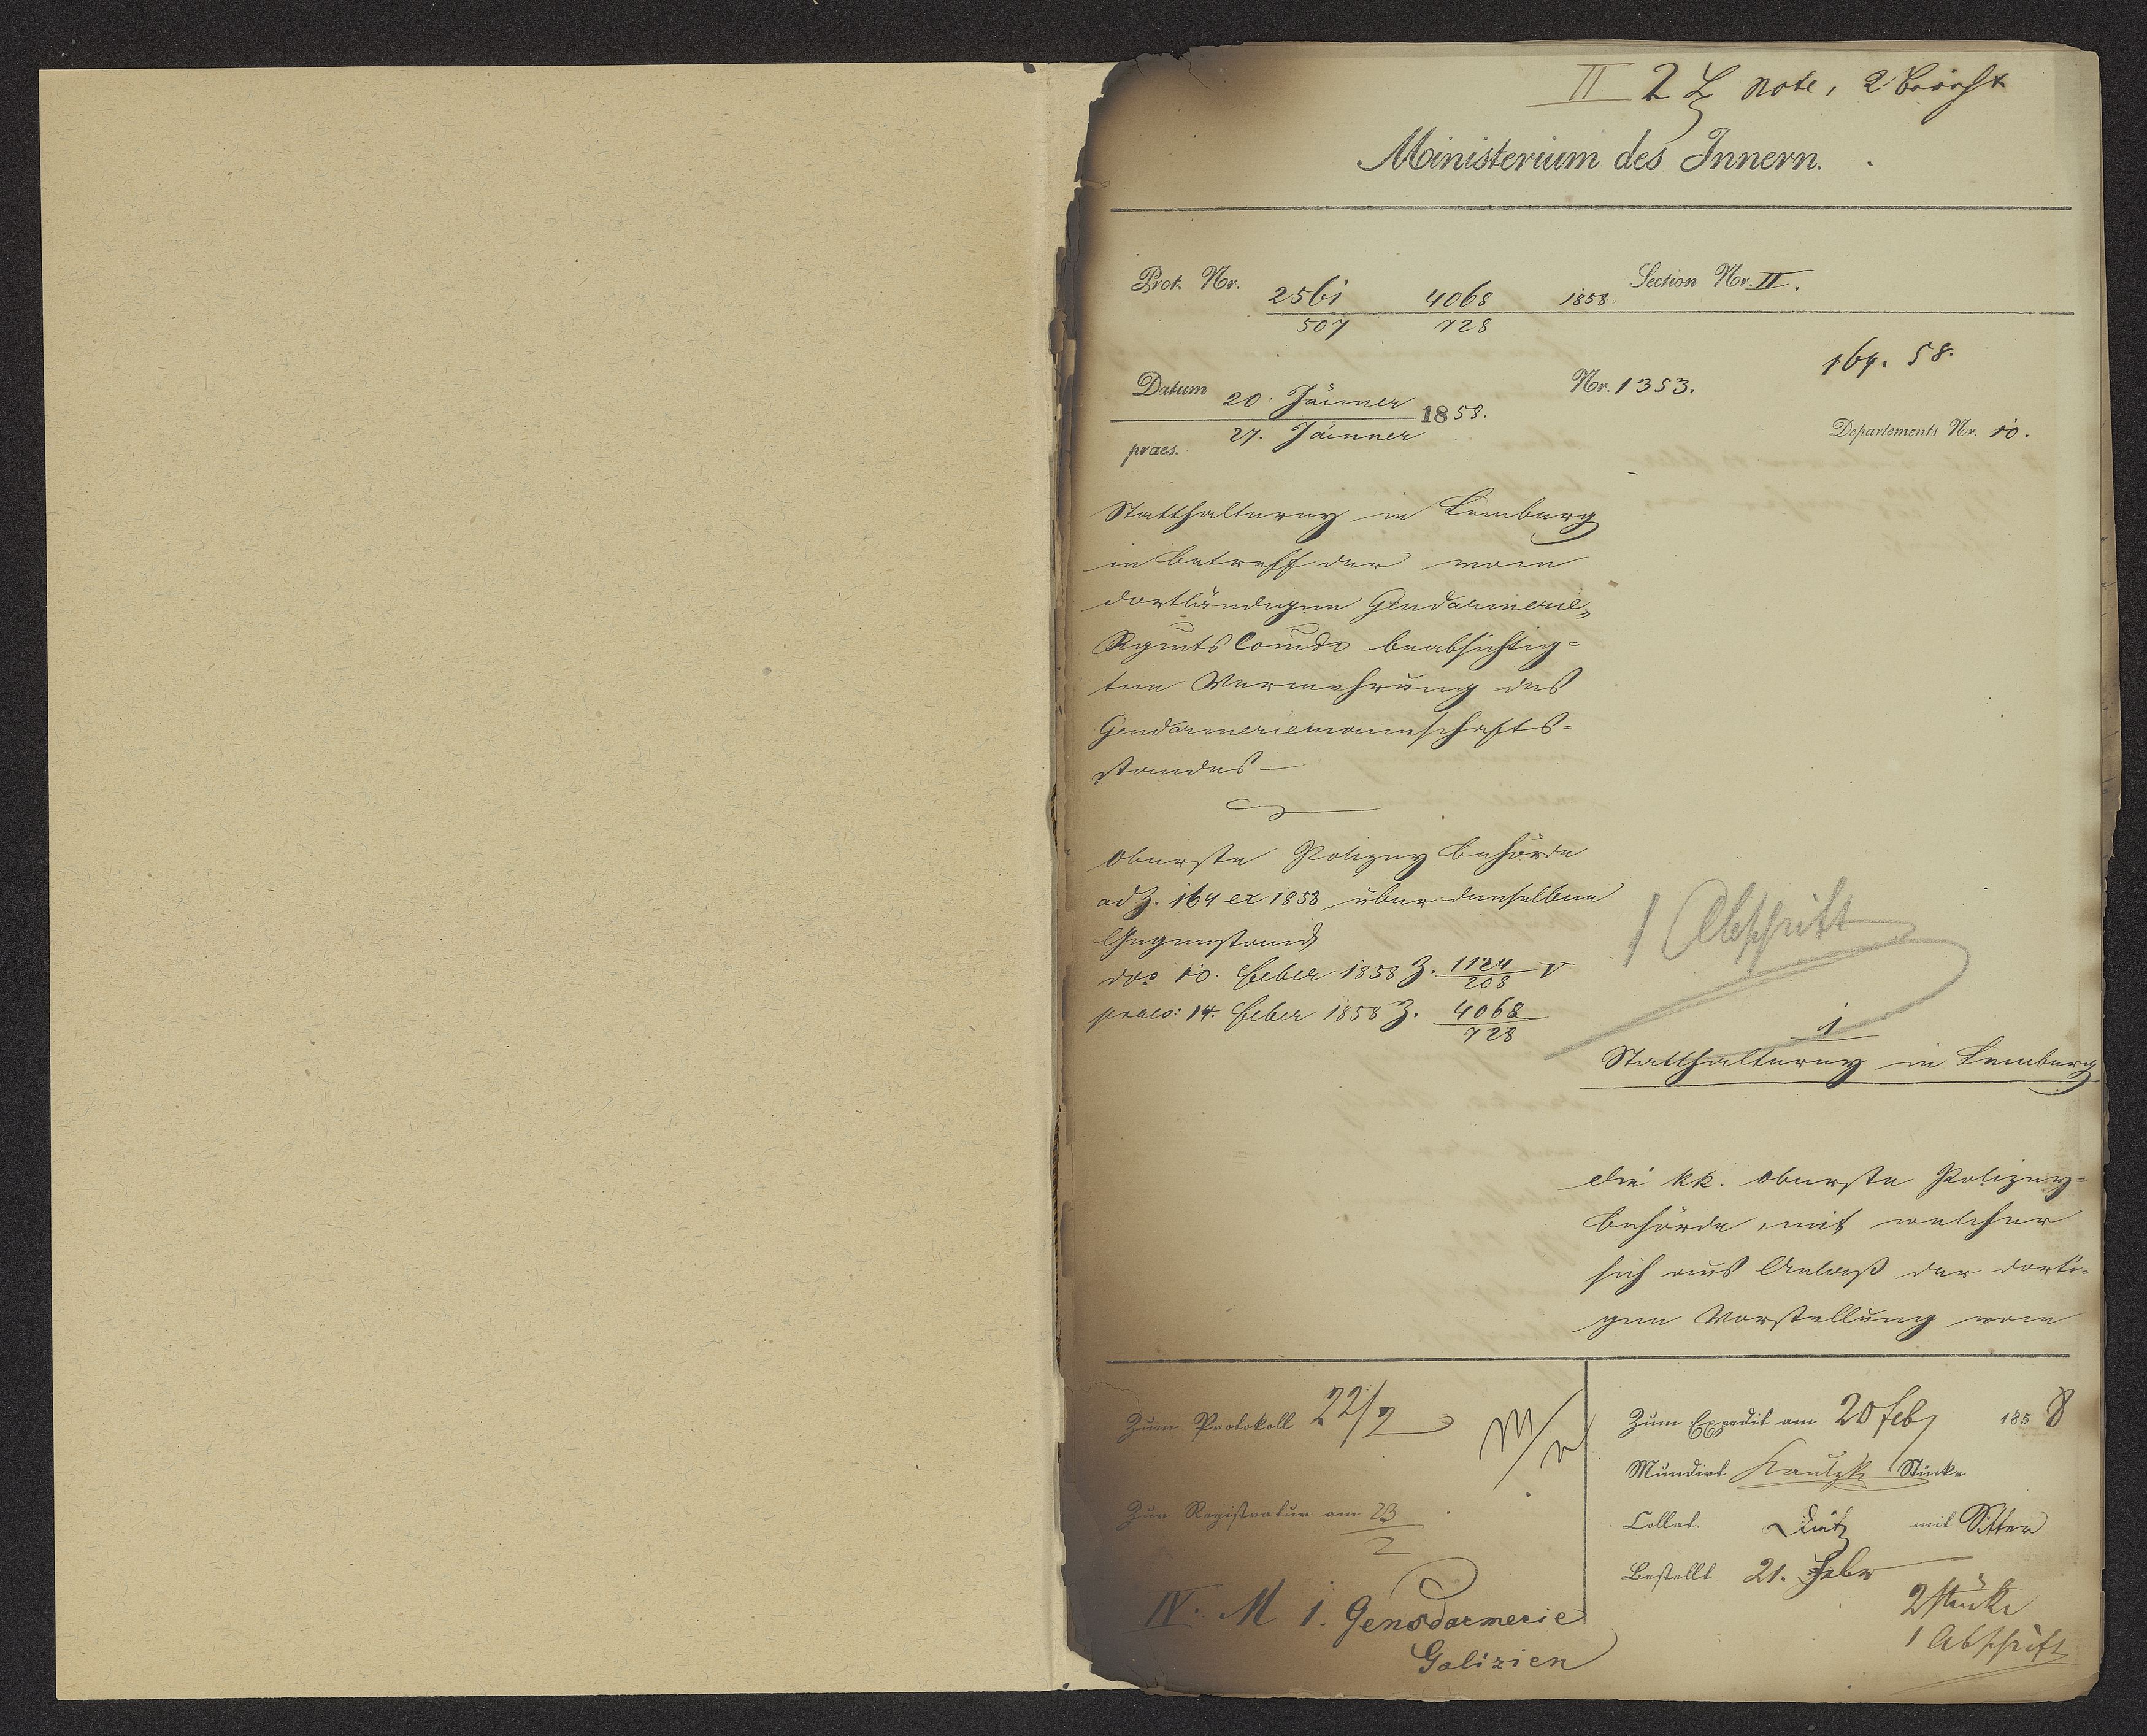 II 2 Note, 2 Bericht
Ministerium des Innern.
Prot. Nr. 2561/507 4068/728 1858. Section Nr. II.
164. 58.
Datum 20. Jänner 1858. Nr. 1353.
praes. 27. Jänner
Departements Nr. 10.
Statthalterey in Lemberg
in betreff der vom
dortländigen Gendarmerie
Rgmts Comdo beabsichtig=
ten Vermehrung des
Gendarmeriemannschafts=
standes
Oberste Polizey behörde
ad Z. 164 ex 1858 über denselben
Gegenstand
ddo 10. Feber 1858 Z. 1124/208
praes: 14. Feber 1858 Z. 4068/728
1 Abschrift
1
Statthalterey in Lemberg
Die kk. oberste Polizey=
behörde, mit welcher
sich aus Anlaß der dorti=
gen Vorstellung vom
Zum Protokoll 22/2
Zur Registratur am 23/2
IV. M 1. Gensdarmerie
Galizien
Zum Expedit am 20 feb 1858
Mundirt Stücke
Collat. mit
Bestellt 21. Febr
2 Stücke
1 Abschrift